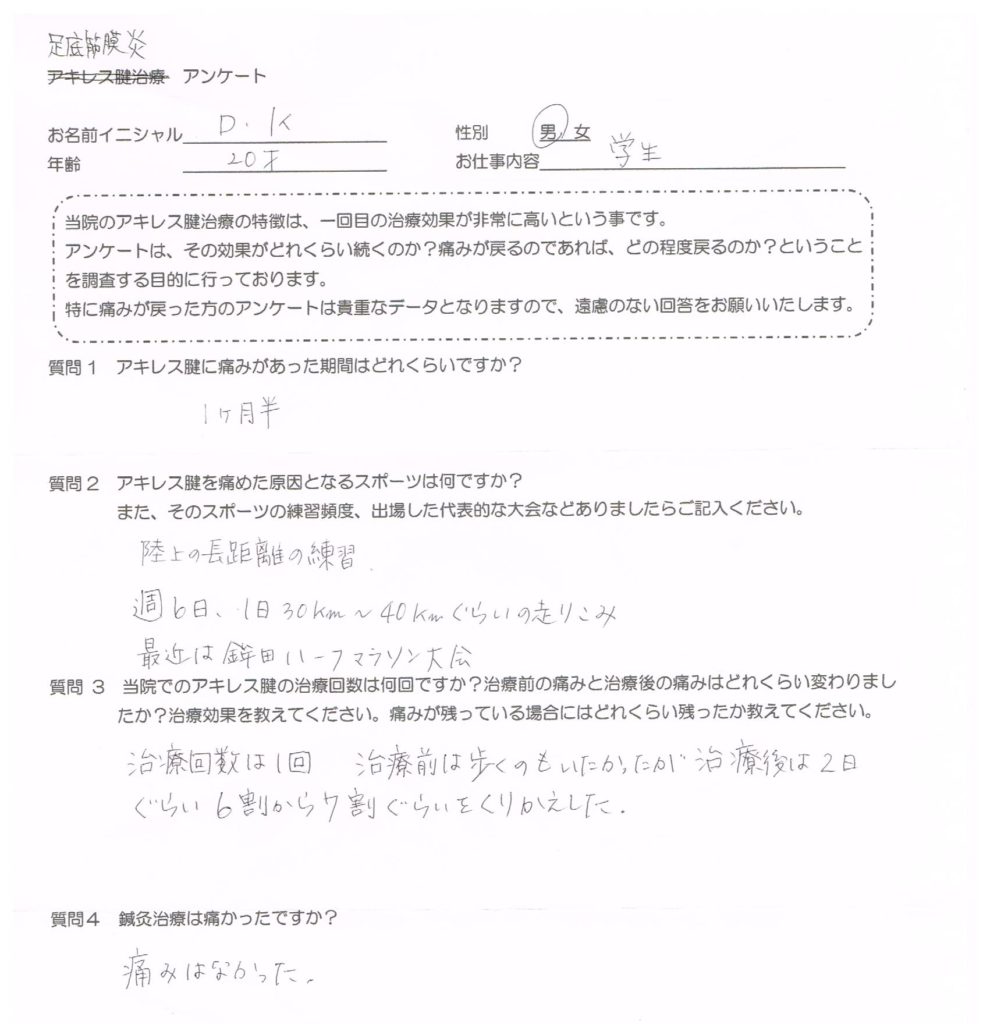 足底筋膜炎
アキレス腱治療 アンケート
お名前イニシャル D.K 性別 男 女
年齢 20才 お仕事内容 学生
当院のアキレス腱治療の特徴は、一回目の治療効果が非常に高いという事です。
アンケートは、その効果がどれくらい続くのか？痛みが戻るのであれば、どの程度戻るのか？ということ
を調査する目的に行っております。
特に痛みが戻った方のアンケートは貴重なデータとなりますので、遠慮のない回答をお願いいたします。
質問１ アキレス腱に痛みがあった期間はどれくらいですか？
1ヶ月半
質問２ アキレス腱を痛めた原因となるスポーツは何ですか？
また、そのスポーツの練習頻度、出場した代表的な大会などありましたらご記入ください。
陸上の長距離の練習.
週6日、1日30km～40kmぐらいの走りこみ
最近は鉾田ハーフマラソン大会
質問 ３ 当院でのアキレス腱の治療回数は何回ですか？治療前の痛みと治療後の痛みはどれくらい変わりまし
たか？治療効果を教えてください。痛みが残っている場合にはどれくらい残ったか教えてください。
治療回数は1回 治療前は歩くのもいたかったが治療後は2日
ぐらい6割から7割ぐらいをくりかえした.
質問４ 鍼灸治療は痛かったですか？
痛みはなかった.